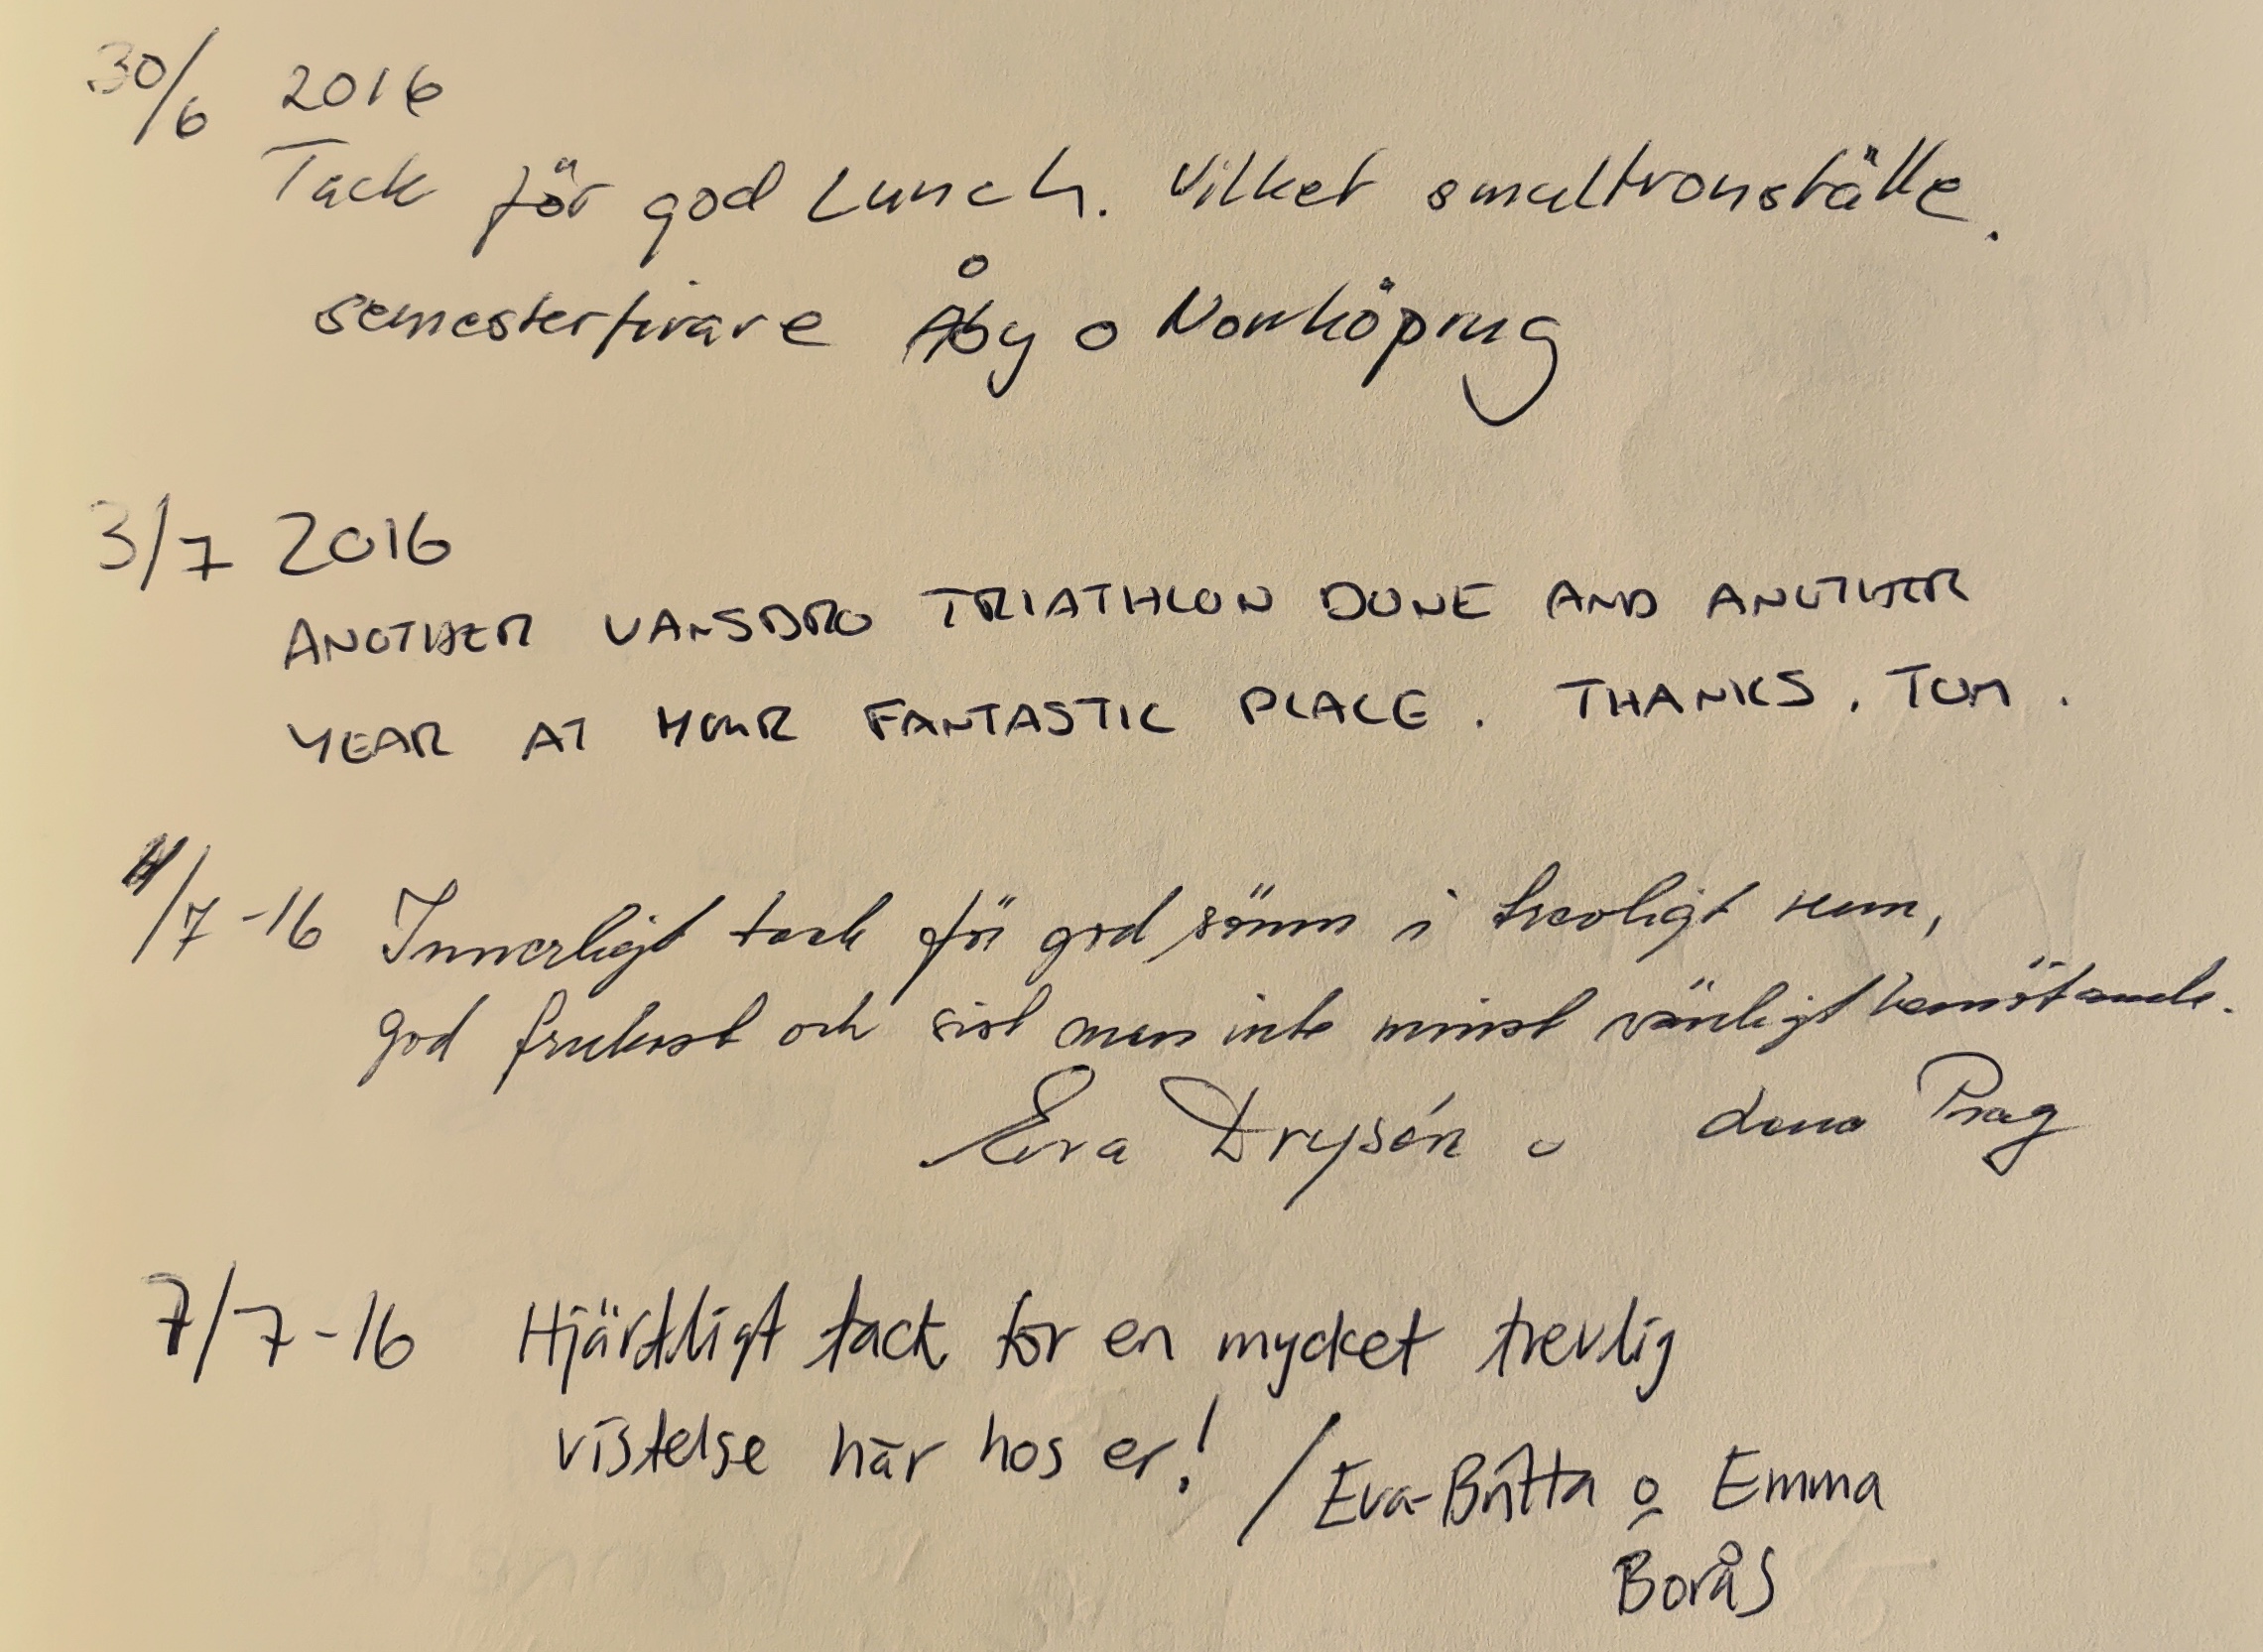 30/6 2016
Tack för god Lunch. Vilket smultronställe.
semesterfirare Åby o Norrköping
3/7 2016
ANOTHER VANSBRO TRIATHLON DONE AND ANOTHER
YEAR AT YOUR FANTASTIC PLACE. THANKS, TOM.
4/7-16 Innerligt tack för god sömn i trevligt rum,
god frukost och sist men inte minst vänligt bemötande.
Eva Drysén o Lena Prag
7/7-16 Hjärtligt tack för en mycket trevlig
vistelse här hos er! /Eva-Britta o Emma
Borås